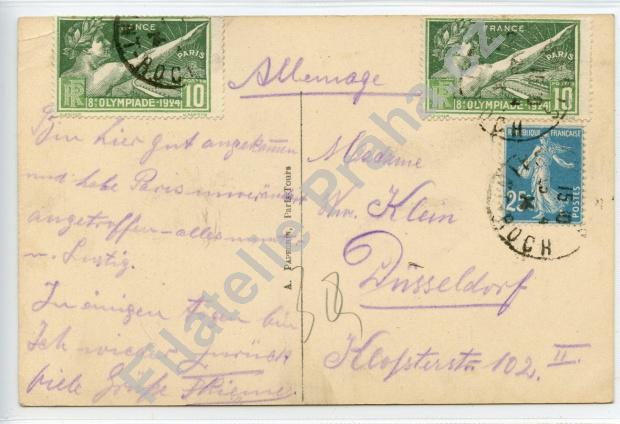 FRANCE
PARIS
RF
8E OLYMPIADE-1924
10
ST-ROCH
FRANCE
PARIS
RF
8E OLYMPIADE-1924
10
REPUBLIQUE FRANÇAISE
25c
POSTES
15 10
ROCH
Allemagne
Bin hier gut angekommen
und habe Paris unverändert
angetroffen - alles
u. Lustig.
In einigen Tagen bin
Ich wieder zurück
viele Grüße Thieme.
A. PAPEGHIN, Paris-Tours
Madame
Klein
Düsseldorf
Klosterstr 102 II.
Filatelie Praha.cz